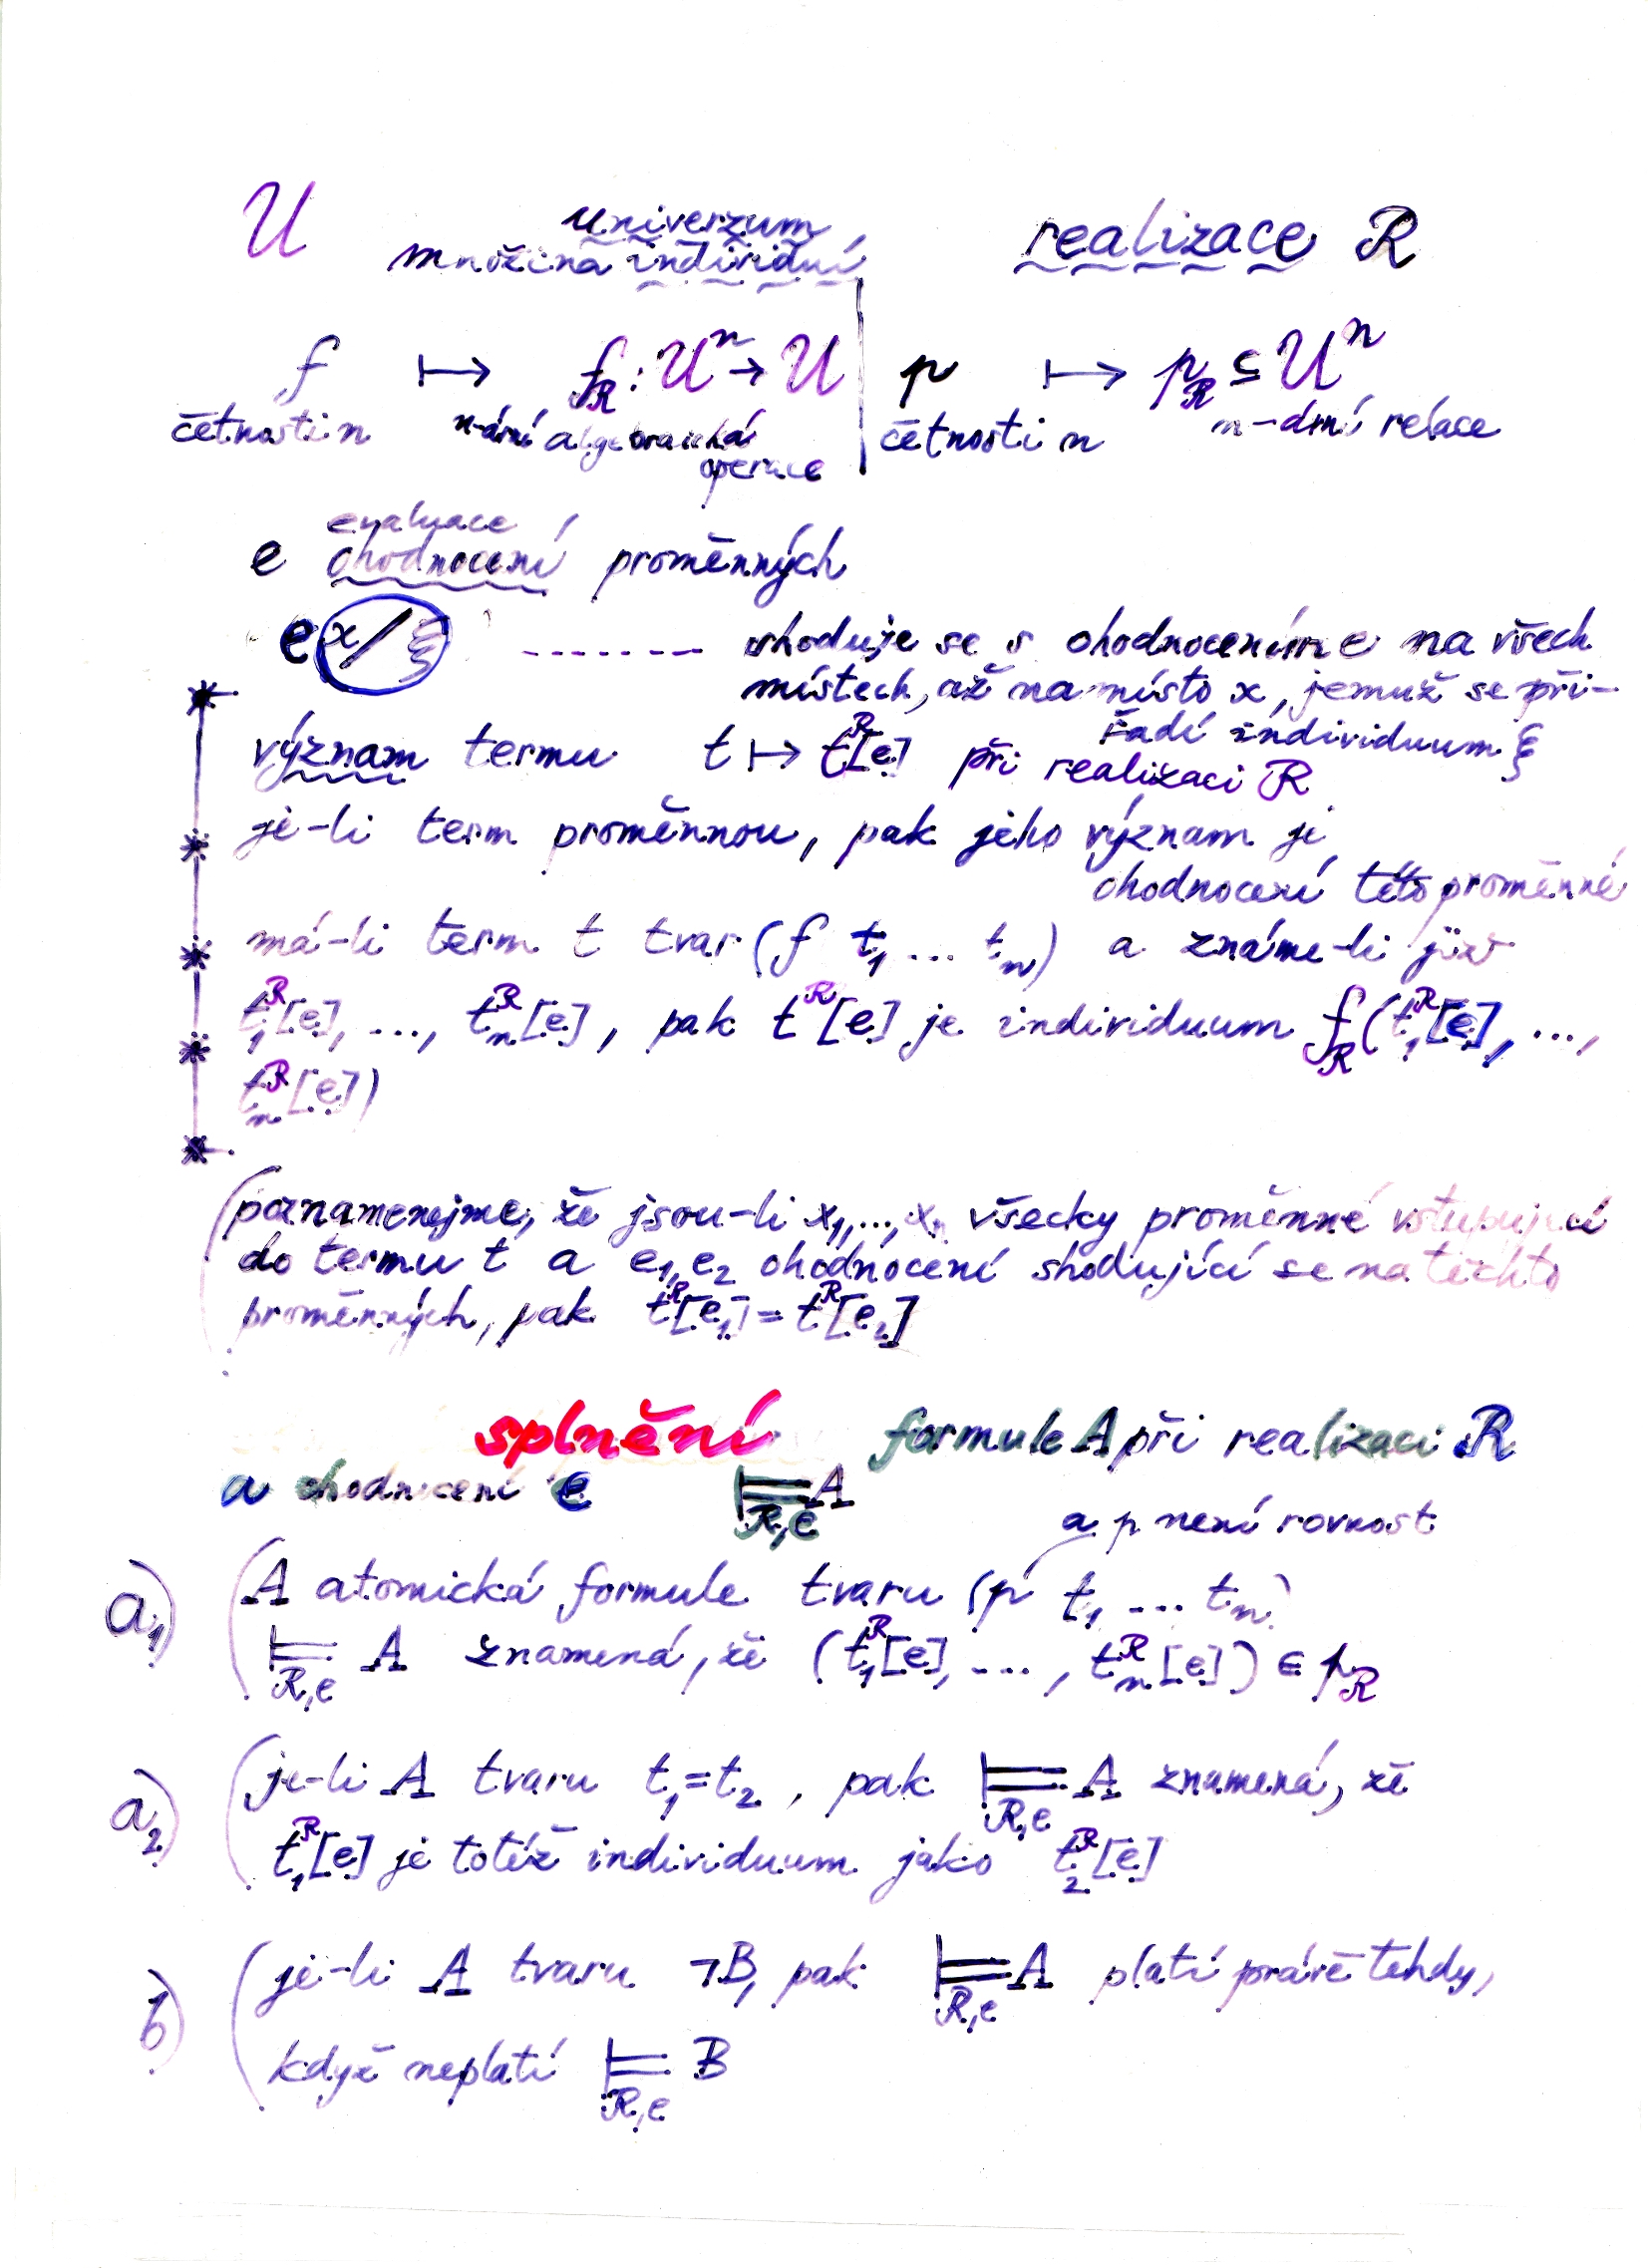 U univerzum, realizace R
množina individuí
f ↦ f_R : Uⁿ → U | p ↦ p_R ⊆ Uⁿ
četnosti n n-ární algebraická četnosti n n-ární relace
operace
evaluace,
e ohodnocení proměnných
e(x/ξ) ------- shoduje se s ohodnocením e na všech
místech, až na místo x, jemuž se při-
řadí individuum ξ
význam termu t ↦ t^R[e] při realizaci R
je-li term proměnnou, pak jeho význam je
ohodnocení této proměnné
má-li term t tvar (f t₁ ... tₙ) a známe-li již
t₁^R[e], ..., tₙ^R[e], pak t^R[e] je individuum f_R(t₁^R[e], ...,
tₙ^R[e])
(poznamenejme, že jsou-li x₁,...,xₙ všecky proměnné vstupující
do termu t a e₁, e₂ ohodnocení shodující se na těchto
proměnných, pak t^R[e₁] = t^R[e₂]
splnění formule A při realizaci R
a ohodnocení e ⊨_{R,e} A
a p není rovnost
a₁) (A atomická formule tvaru (p t₁ ... tₙ)
⊨_{R,e} A znamená, že (t₁^R[e], ..., tₙ^R[e]) ∈ p_R
a₂) (je-li A tvaru t₁ = t₂, pak ⊨_{R,e} A znamená, že
t₁^R[e] je totéž individuum jako t₂^R[e]
b) (je-li A tvaru ¬B, pak ⊨_{R,e} A platí právě tehdy,
když neplatí ⊨_{R,e} B